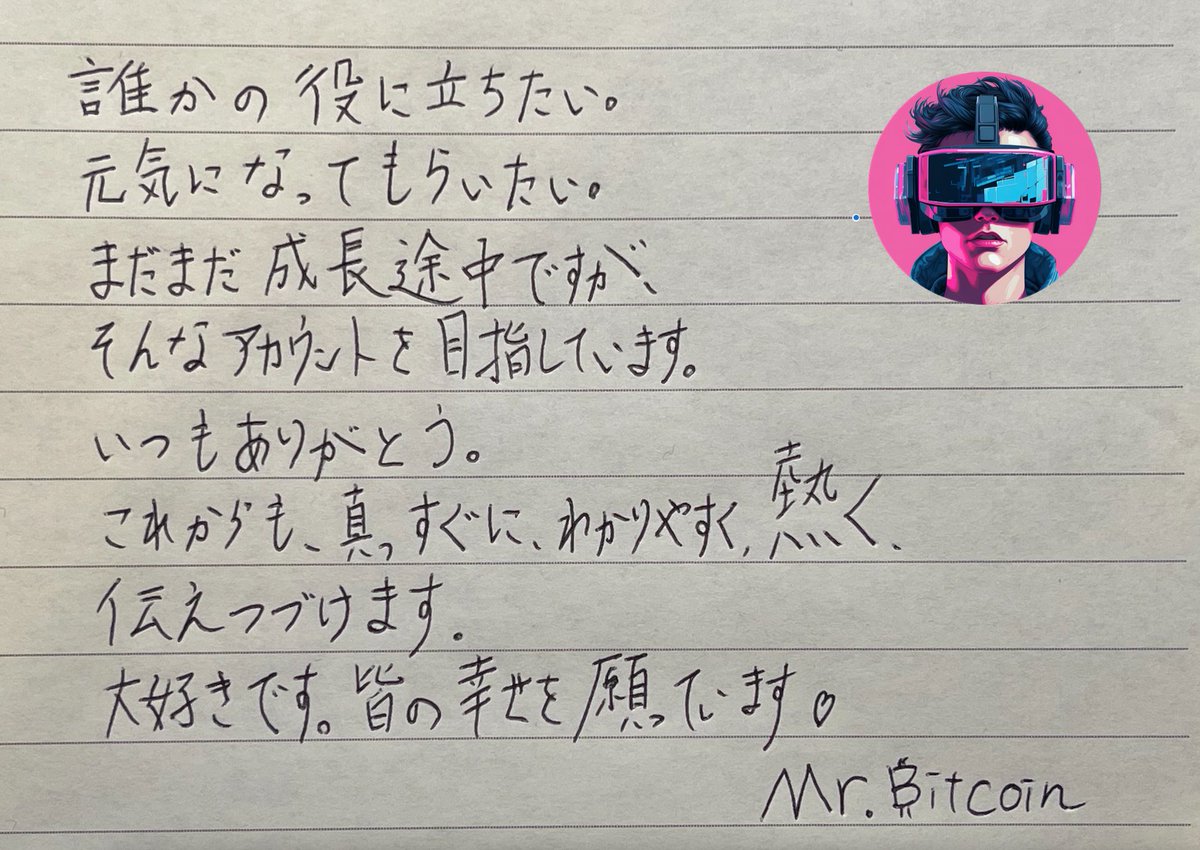 誰かの役に立ちたい。
元気になってもらいたい。
まだまだ成長途中ですが、
そんなアカウントを目指しています。
いつもありがとう。
これからも、真っすぐに、わかりやすく、熱く、
伝えつづけます。
大好きです。皆の幸せを願っています♡
Mr.Bitcoin